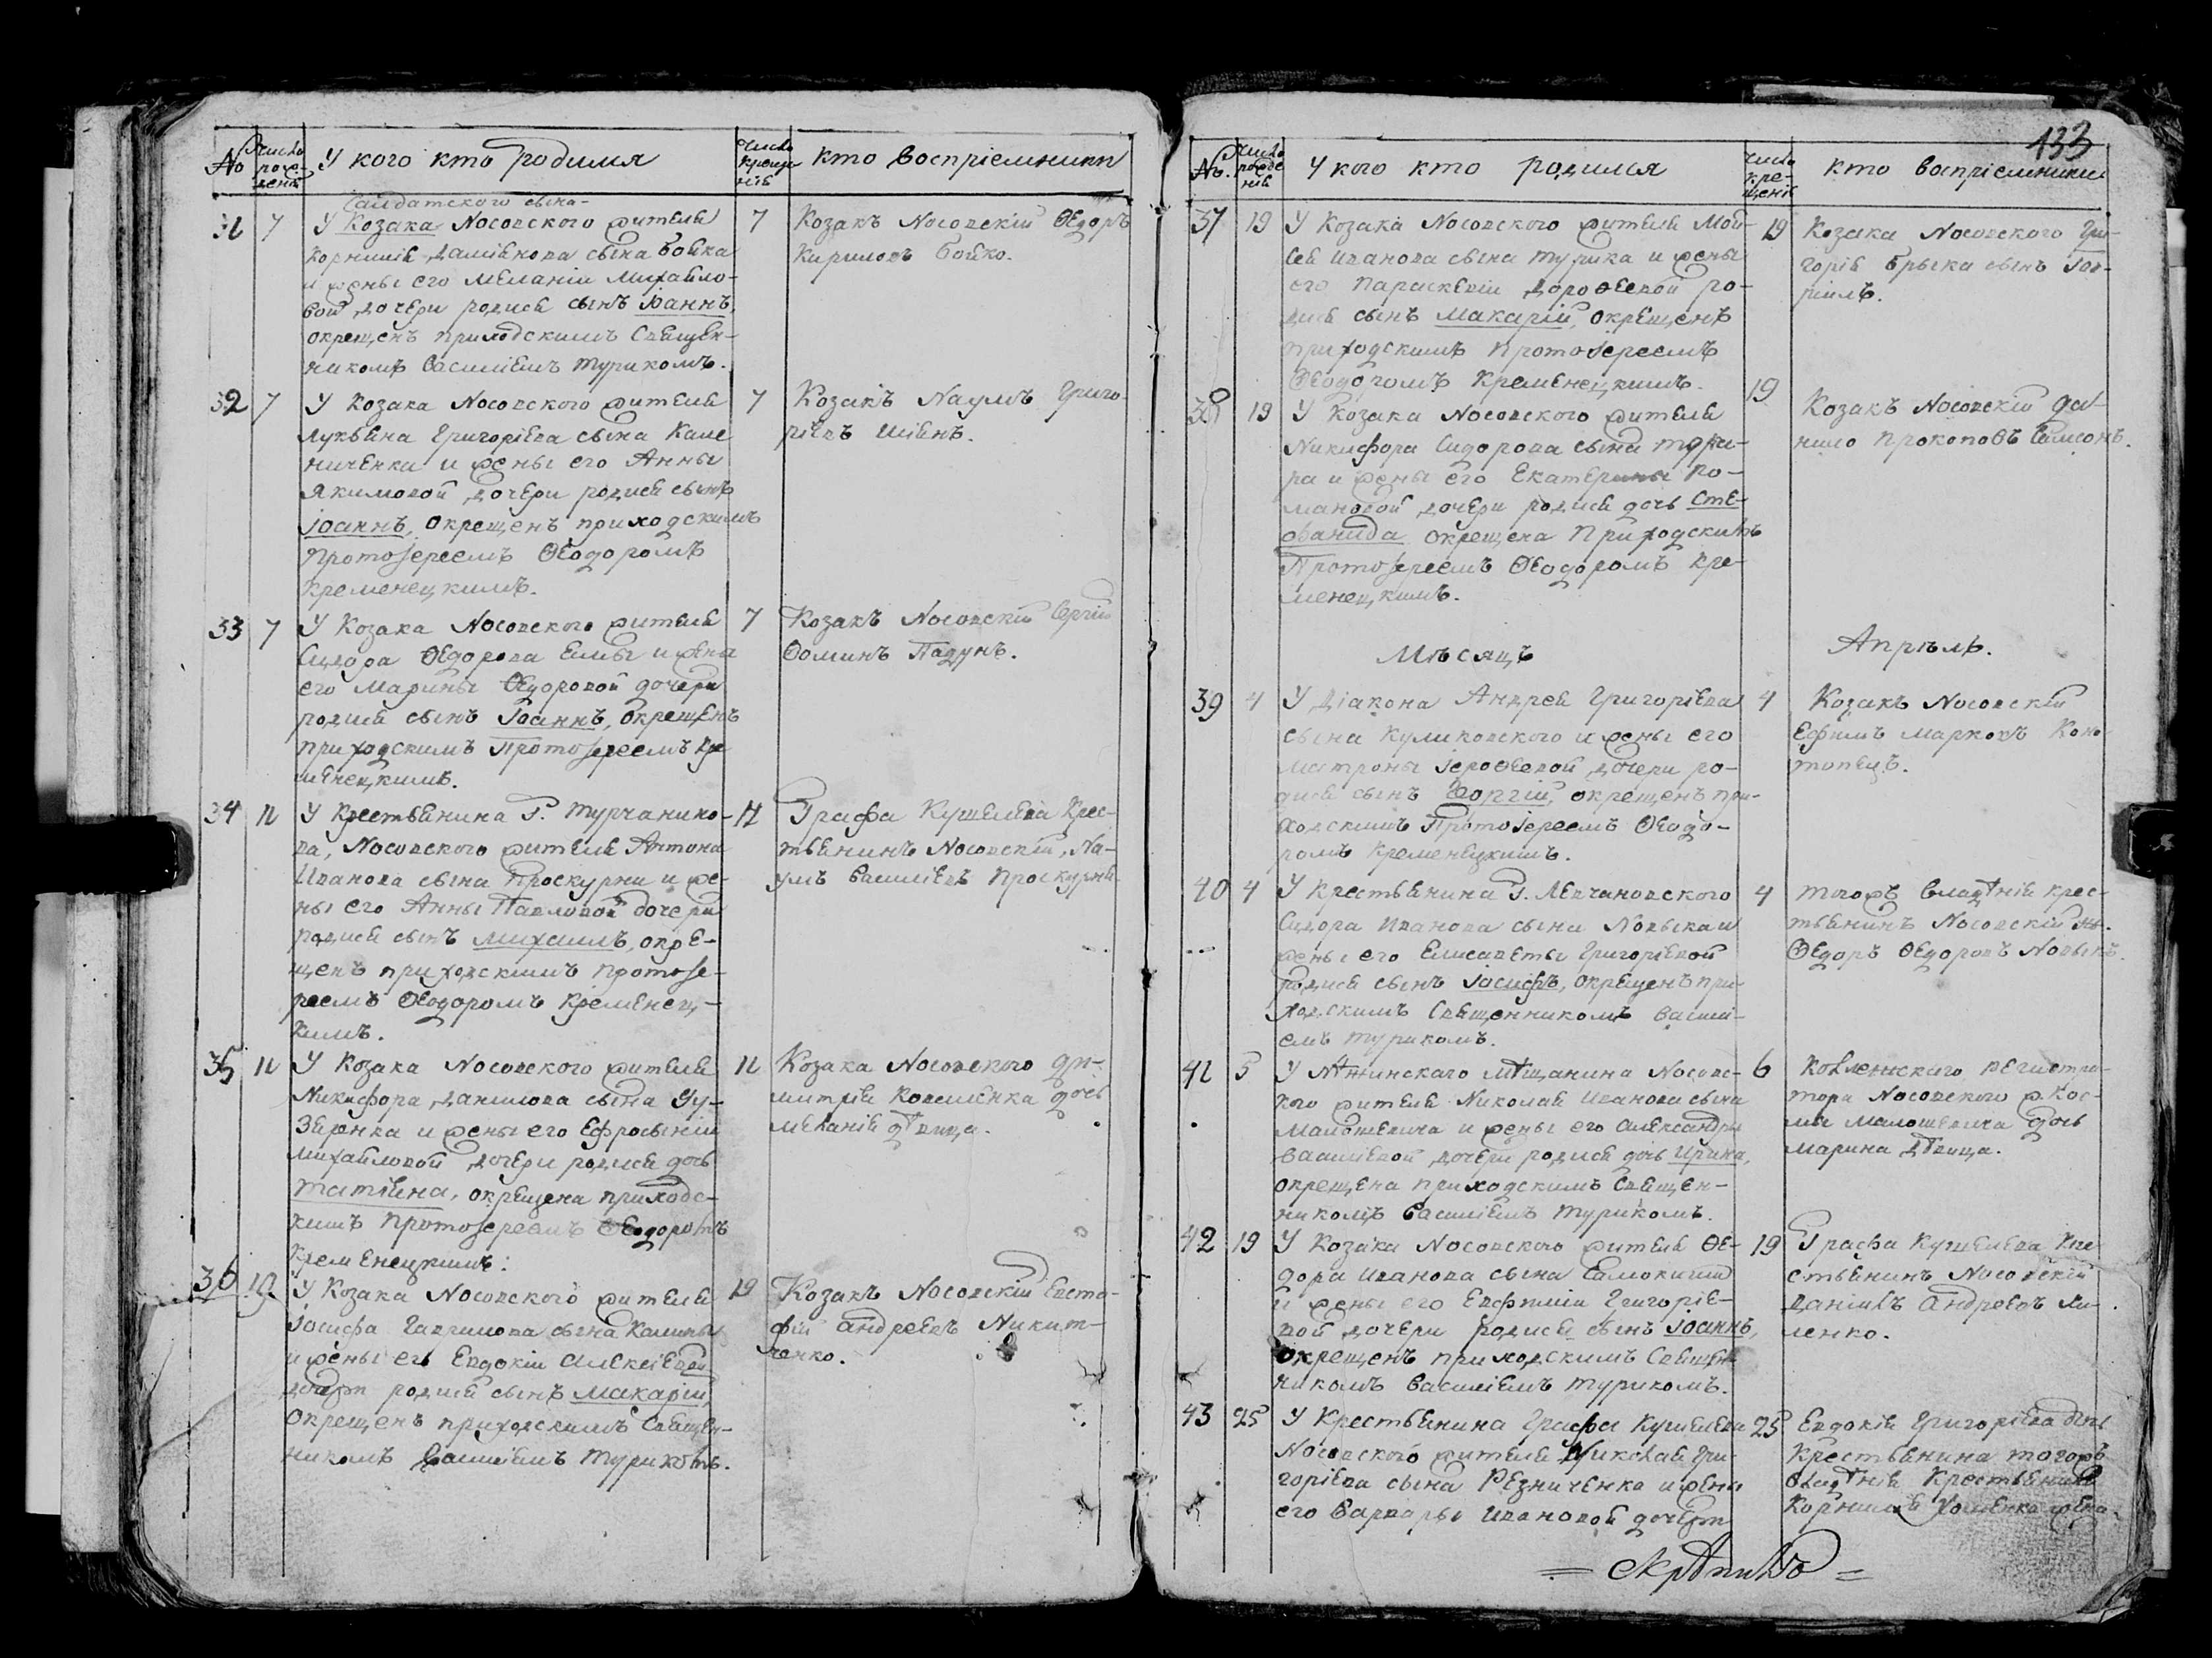 No
Число рожденія
У кого кто родился
Число крещенія
кто воспріемники
Салдатского сына
31 7 У Козака Носовского жителя
Корнилія Даміянова сына Бойка
и жены его Меланіи Михайло-
вой дочери родися сынъ Іоаннъ,
окрещенъ приходскимъ Священ-
никомъ Василіемъ Турикомъ.
7 Козакъ Носовскій Ѳедоръ
Кириловъ Бойко.
32 7 У Козака Носовского жителя
Лукьяна Григоріева сына Каме
ниченка и жены его Анны
Якимовой дочери родися сынъ
Іоаннъ, окрещенъ приходскимъ
Протоіереемъ Ѳеодоромъ
Кременецкимъ.
7 Козакъ Наумъ Григо-
ріевъ
33 7 У Козака Носовского жителя
Сидора Ѳедорова и жены
его Марины Ѳедоровой дочери
родися сынъ Іоаннъ, окрещенъ
приходскимъ Протоіереемъ Кре
менецкимъ.
7 Козакъ Носовскій Сергій
Ѳоминъ Падунъ.
34 12 У Крестьянина Г. Турчанино-
ва, Носовского жителя Антона
Иванова сына Проскурни и же-
ны его Анны Павловой дочери
родися сынъ Михаилъ, окре-
щенъ приходскимъ Протоіе-
реемъ Ѳеодоромъ Кременец-
кимъ.
12 Графа Кушелева Крес-
тьянинъ Носовскій, На-
умъ Василіевъ Проскурня
35 12 У Козака Носовского жителя
Никифора Данилова сына
и жены его Ефросыніи
Михайловой дочери родися дочь
Татіяна, окрещена приходс-
кимъ Протоіереемъ Ѳеодоромъ
Кременецкимъ.
12 Козака Носовского Ди-
митрія Коваленка дочь
Меланія дѣвица.
36 19 У Козака Носовского жителя
Іосифа Гаврилова сына Калины
и жены его Евдокіи Алексіевой
дочери родися сынъ Макарій,
окрещенъ приходскимъ Священ-
никомъ Василіемъ Турикомъ.
19 Козакъ Носовскій Евста-
фій Андреевъ Никит-
ченко.
133
No.
Число рожденія
У кого кто родился
Число крещенія
кто воспріемники
37 19 У Козака Носовского жителя Мой-
сея Иванова сына Турика и жены
его Параскевіи Дороѳеевой ро-
дися сынъ Макарій, окрещенъ
приходскимъ Протоіереемъ
Ѳеодоромъ Кременецкимъ.
19 Козака Носовского Гри-
горія Брыка сынъ Гав-
ріилъ.
38 19 У Козака Носовского жителя
Никифора Сидорова сына
и жены его Екатерины Ро-
мановой дочери родися дочь Сте-
фанида окрещена Приходскимъ
Протоіереемъ Ѳеодоромъ Кре-
менецкимъ.
19 Козакъ Носовскій Да-
нило Прокоповъ Самсонъ.
Мѣсяцъ Апрѣль.
39 4 У Діакона Андрея Григоріева
сына Куликовского и жены его
Матроны Іероѳеевой дочери ро-
дися сынъ Георгій, окрещенъ при-
ходскимъ Протоіереемъ Ѳеодо-
ромъ Кременецкимъ.
4 Козакъ Носовскій
Ефимъ Марковъ Коно-
топецъ.
40 4 У Крестьянина Г. Левчановского
Сидора Иванова сына Новыка и
жены его Елисаветы Григоріевой
родися сынъ Іосифъ, окрещенъ при-
ходскимъ Священникомъ Васили-
емъ Турикомъ.
4 тогожъ владѣнія крес-
тьянинъ Носовскій ж.
Ѳедоръ Ѳедоровъ Новыкъ.
41 5 У Нѣжинскаго мѣщанина Носовс-
кого жителя Николая Иванова сына
Малошевича и жены его Александры
Василіевой дочери родися дочь Ирина,
окрещена приходскимъ Священ-
никомъ Василіемъ Турикомъ.
6 Коллежского регистра-
тора Носовского ж. Кос-
мы Малошевича дочь
Марина дѣвица.
42 19 У Козака Носовского жителя Ѳе-
дора Иванова сына
и жены его Евфиміи Григоріе-
вой дочери родися сынъ Іоаннъ,
окрещенъ приходскимъ Священ-
никомъ Василіемъ Турикомъ.
19 Графа Кушелева Кре
стьянинъ Носовскій
Даніилъ Андреевъ
ленко.
43 25 У Крестьянина Графа Кушелева
Носовского жителя Николая Гри-
горіева сына Резниченка и жены
его Варвары Ивановой дочери
25 Евдокія Григоріева дочь
Крестьянина тогожъ
владѣнія Крестьянина
Корнилія Хоменка жена.
= Скрѣпилъ =